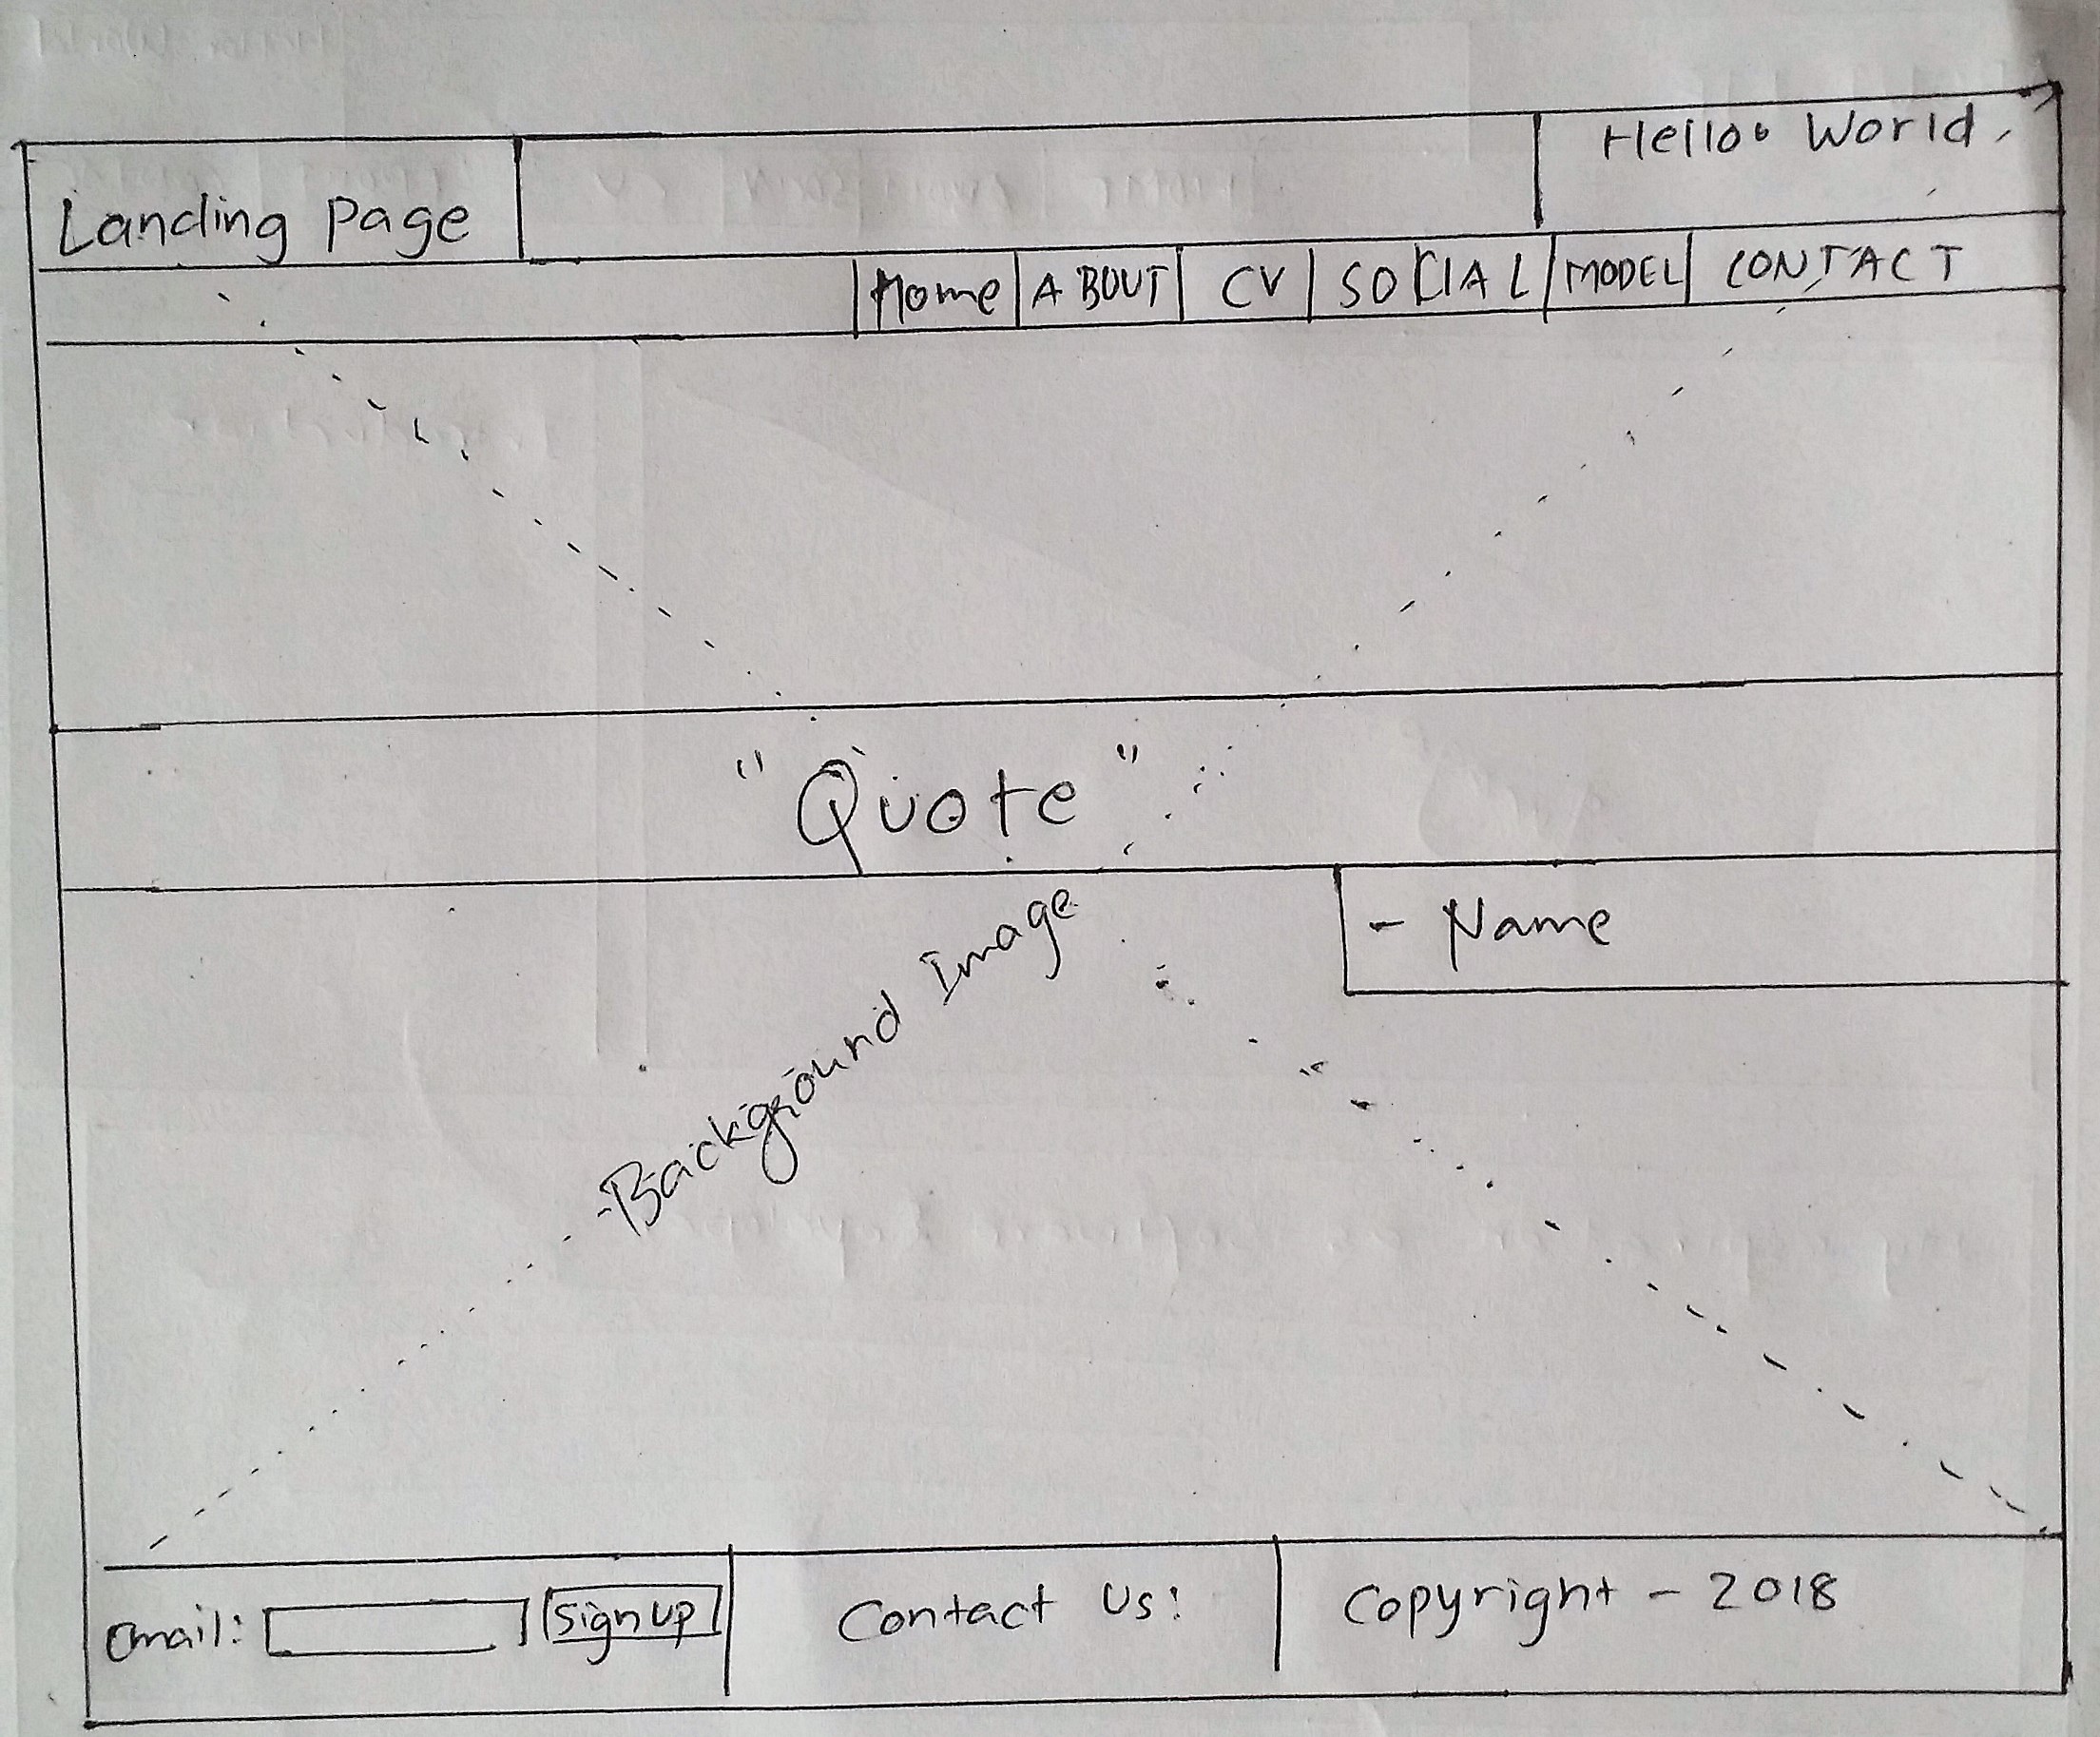 Hello World
Landing Page
Home ABOUT CV SOCIAL MODEL CONTACT
"Quote"
- Name
Background Image
email: Sign up Contact Us: Copyright - 2018